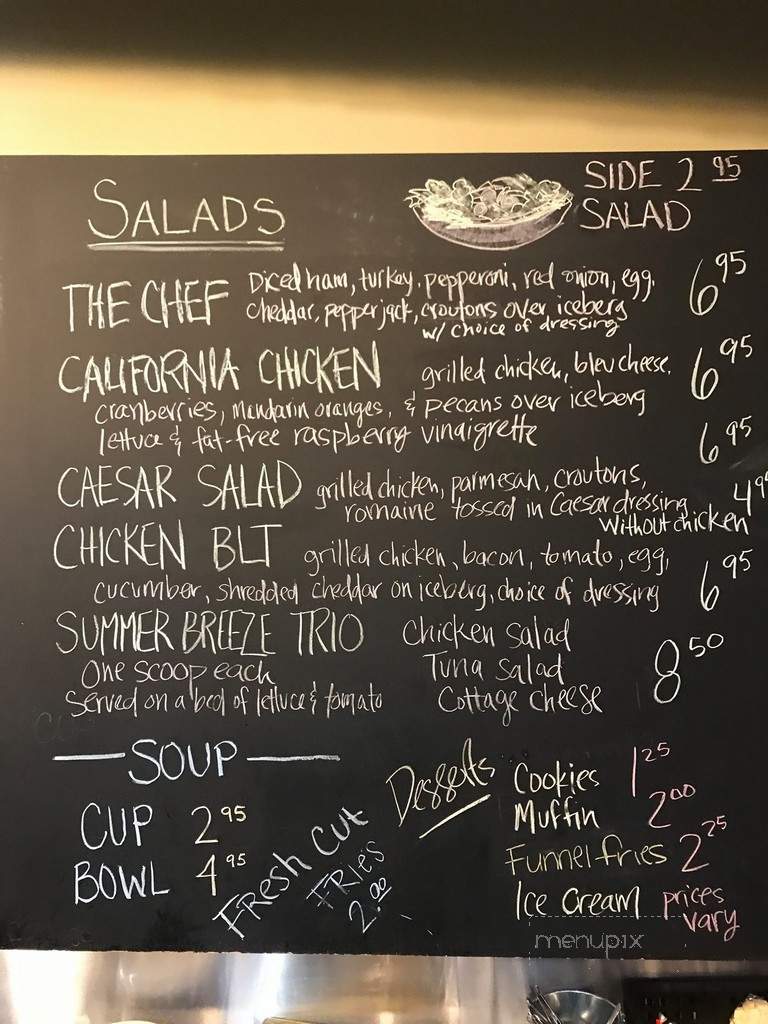 SALADS
SIDE 2 95
SALAD
THE CHEF Diced ham, turkey, pepperoni, red onion, egg, 6 95
cheddar, pepper jack, croutons over iceberg
w/ choice of dressing
CALIFORNIA CHICKEN grilled chicken, bleu cheese, 6 95
cranberries, mandarin oranges, & pecans over iceberg
lettuce & fat-free raspberry vinaigrette
6 95
CAESAR SALAD grilled chicken, parmesan, croutons,
romaine tossed in Caesar dressing 4 95
without chicken
CHICKEN BLT grilled chicken, bacon, tomato, egg,
cucumber, shredded cheddar on iceberg, choice of dressing 6 95
SUMMER BREEZE TRIO Chicken Salad
One scoop each Tuna Salad 8 50
Served on a bed of lettuce & tomato Cottage cheese
SOUP
CUP 2 95
BOWL 4 95
FRESH CUT
FRIES
2.00
Desserts
Cookies 1 25
Muffin 2 00
Funnel fries 2 25
Ice Cream prices
vary
menupix